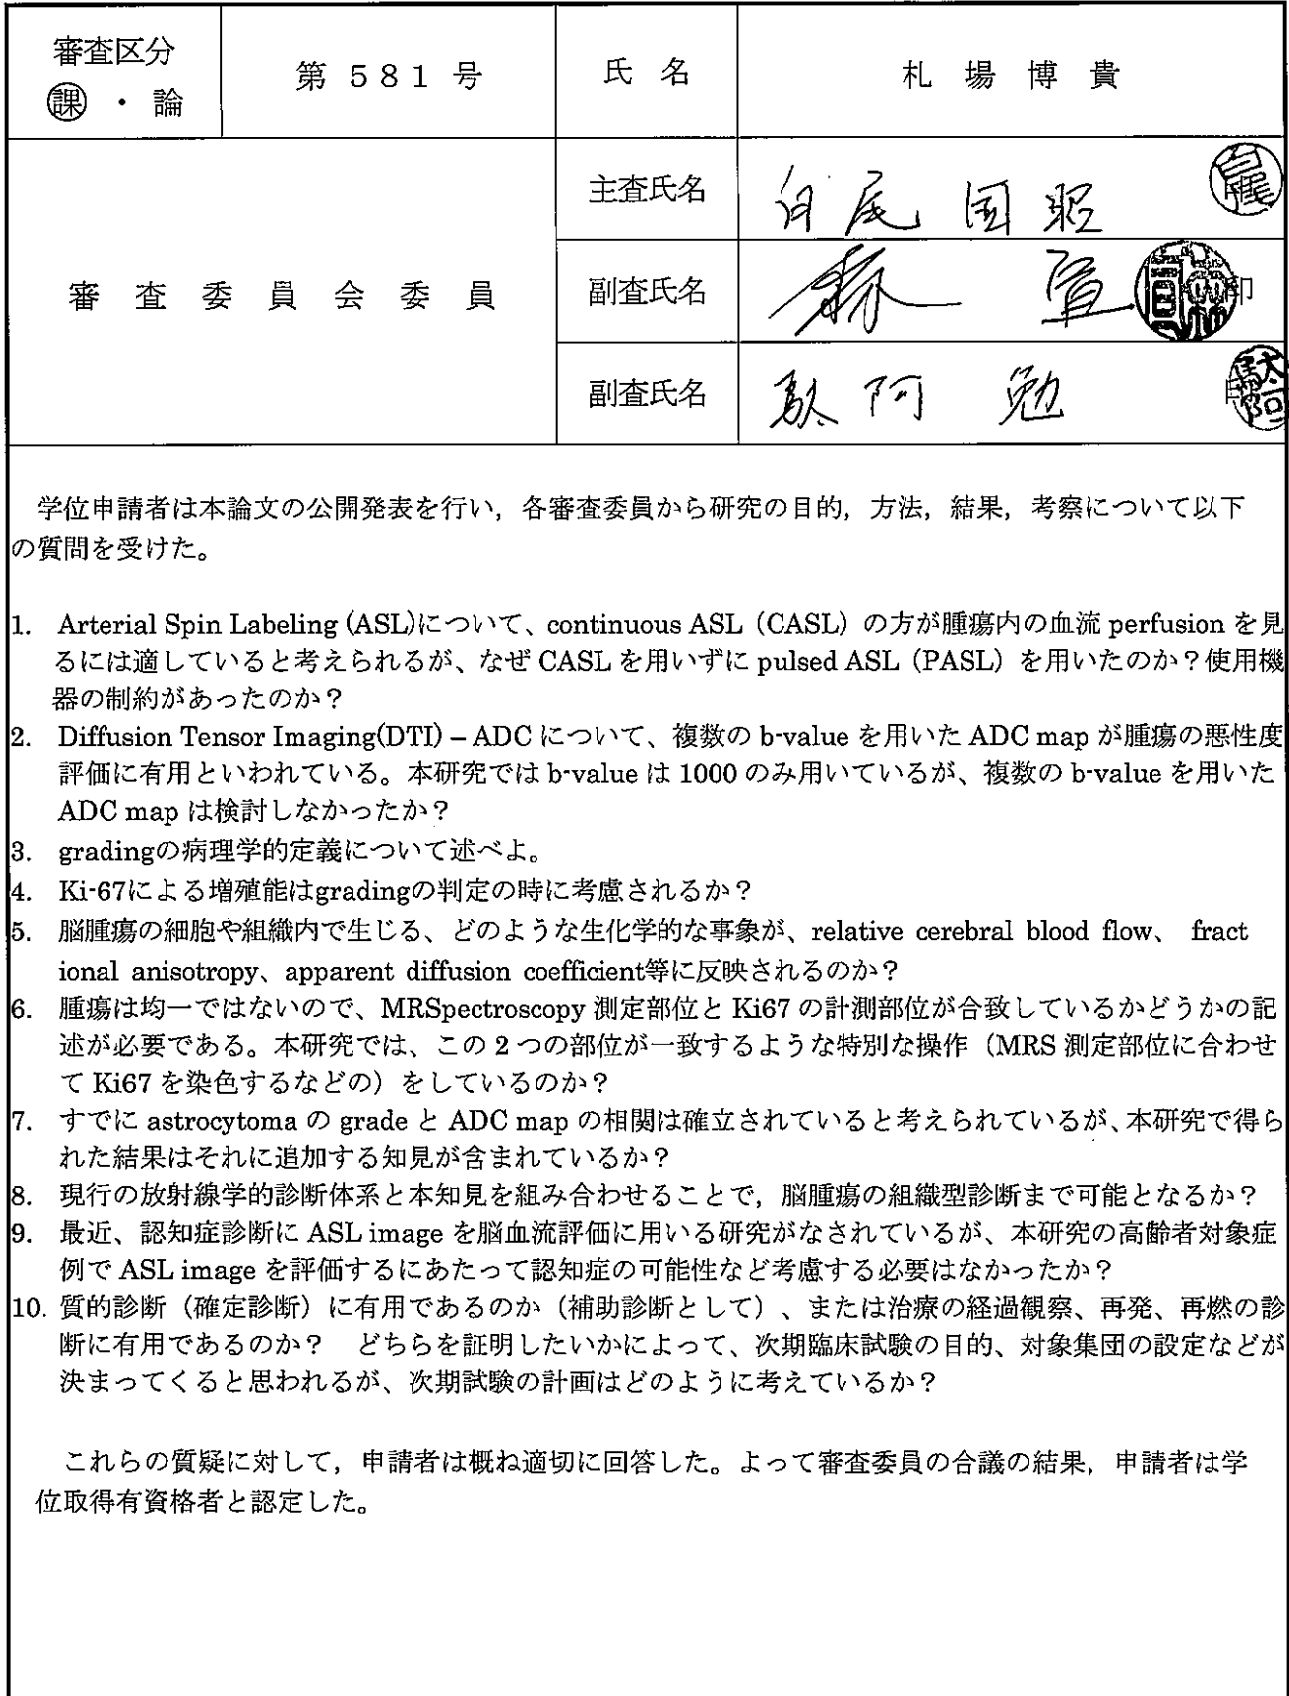 審査区分
課・論
第 581 号
氏 名
札 場 博 貴
審 査 委 員 会 委 員
主査氏名
白尾 国昭
白尾
副査氏名
森 宣
印
副査氏名
駄阿 勉
駄阿
学位申請者は本論文の公開発表を行い，各審査委員から研究の目的，方法，結果，考察について以下
の質問を受けた。
1. Arterial Spin Labeling (ASL)について、continuous ASL（CASL）の方が腫瘍内の血流 perfusion を見
るには適していると考えられるが、なぜ CASL を用いずに pulsed ASL（PASL）を用いたのか？使用機
器の制約があったのか？
2. Diffusion Tensor Imaging(DTI) – ADC について、複数の b-value を用いた ADC map が腫瘍の悪性度
評価に有用といわれている。本研究では b-value は 1000 のみ用いているが、複数の b-value を用いた
ADC map は検討しなかったか？
3. gradingの病理学的定義について述べよ。
4. Ki-67による増殖能はgradingの判定の時に考慮されるか？
5. 脳腫瘍の細胞や組織内で生じる、どのような生化学的な事象が、relative cerebral blood flow、 fract
ional anisotropy、apparent diffusion coefficient等に反映されるのか？
6. 腫瘍は均一ではないので、MRSpectroscopy 測定部位と Ki67 の計測部位が合致しているかどうかの記
述が必要である。本研究では、この 2 つの部位が一致するような特別な操作（MRS 測定部位に合わせ
て Ki67 を染色するなどの）をしているのか？
7. すでに astrocytoma の grade と ADC map の相関は確立されていると考えられているが、本研究で得ら
れた結果はそれに追加する知見が含まれているか？
8. 現行の放射線学的診断体系と本知見を組み合わせることで，脳腫瘍の組織型診断まで可能となるか？
9. 最近、認知症診断に ASL image を脳血流評価に用いる研究がなされているが、本研究の高齢者対象症
例で ASL image を評価するにあたって認知症の可能性など考慮する必要はなかったか？
10. 質的診断（確定診断）に有用であるのか（補助診断として）、または治療の経過観察、再発、再燃の診
断に有用であるのか？　どちらを証明したいかによって、次期臨床試験の目的、対象集団の設定などが
決まってくると思われるが、次期試験の計画はどのように考えているか？
これらの質疑に対して，申請者は概ね適切に回答した。よって審査委員の合議の結果，申請者は学
位取得有資格者と認定した。